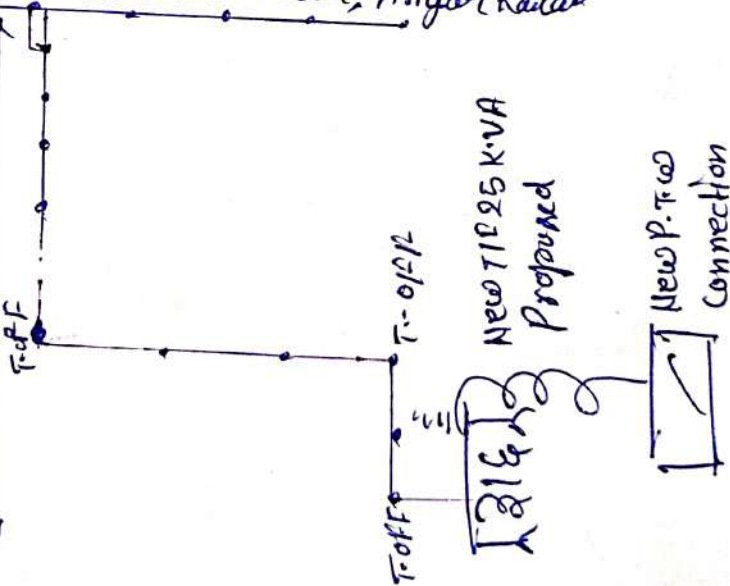 T-off
T-off
T-off
New T/F 25 KVA
Proposed
New P.T.W
Connection